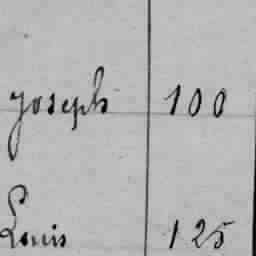 Joseph 100
Louis 125